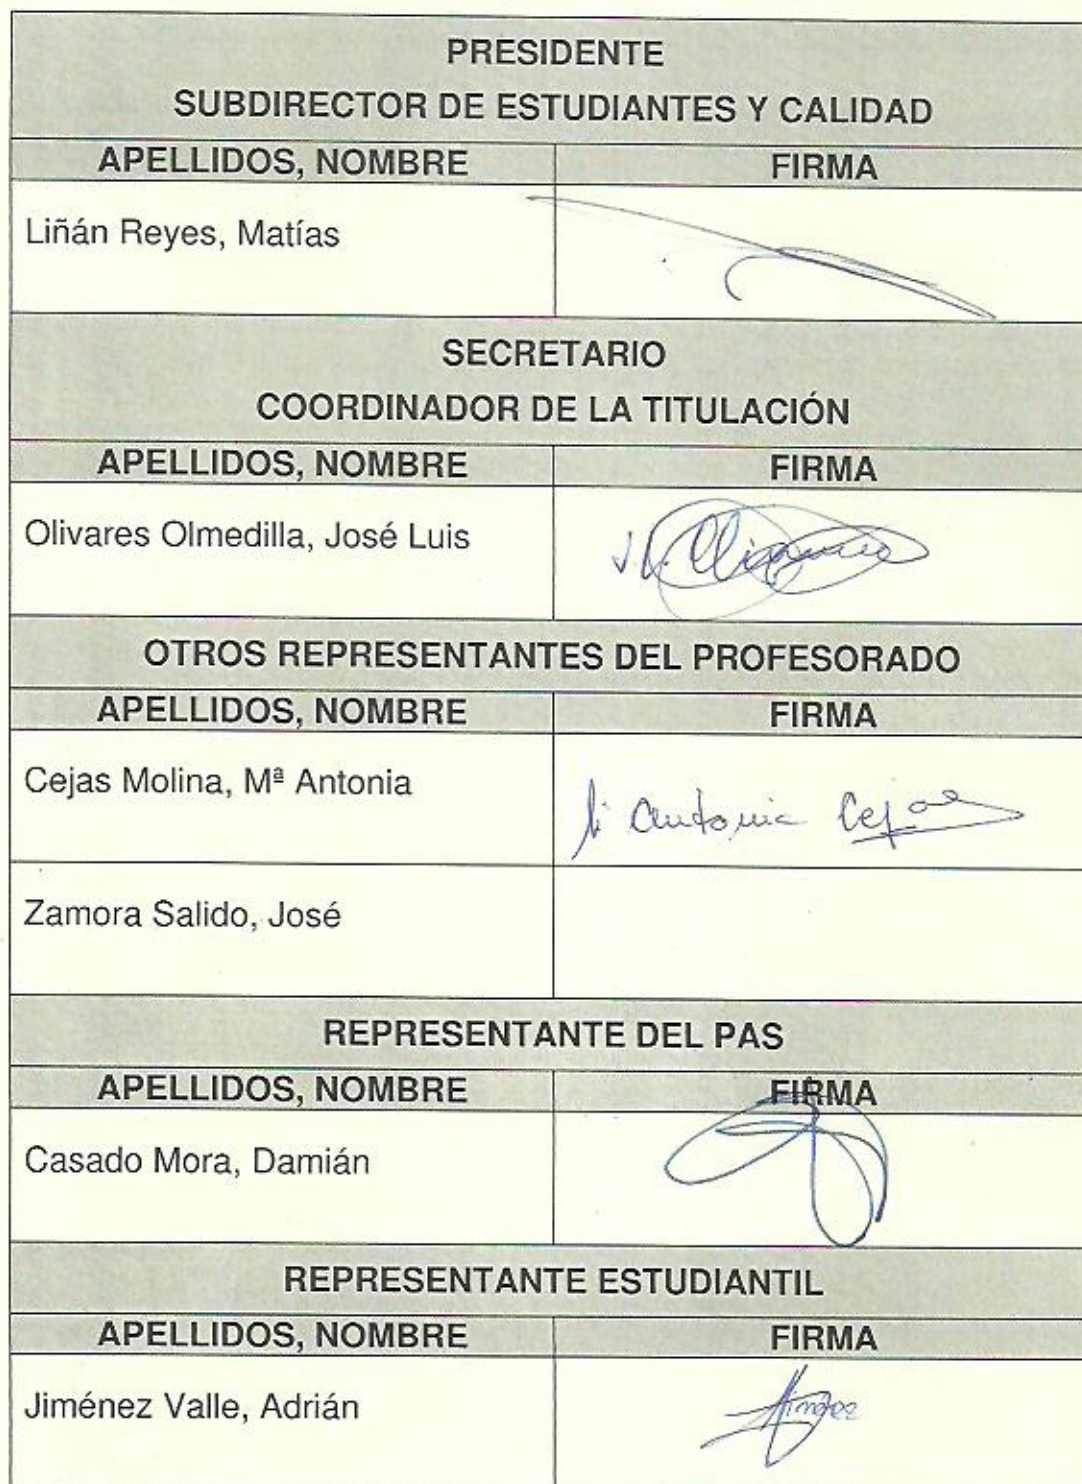 PRESIDENTE
SUBDIRECTOR DE ESTUDIANTES Y CALIDAD
APELLIDOS, NOMBRE FIRMA
Liñán Reyes, Matías
SECRETARIO
COORDINADOR DE LA TITULACIÓN
APELLIDOS, NOMBRE FIRMA
Olivares Olmedilla, José Luis J.L. Olivares
OTROS REPRESENTANTES DEL PROFESORADO
APELLIDOS, NOMBRE FIRMA
Cejas Molina, Mª Antonia Antonia Cejas
Zamora Salido, José
REPRESENTANTE DEL PAS
APELLIDOS, NOMBRE FIRMA
Casado Mora, Damián
REPRESENTANTE ESTUDIANTIL
APELLIDOS, NOMBRE FIRMA
Jiménez Valle, Adrián